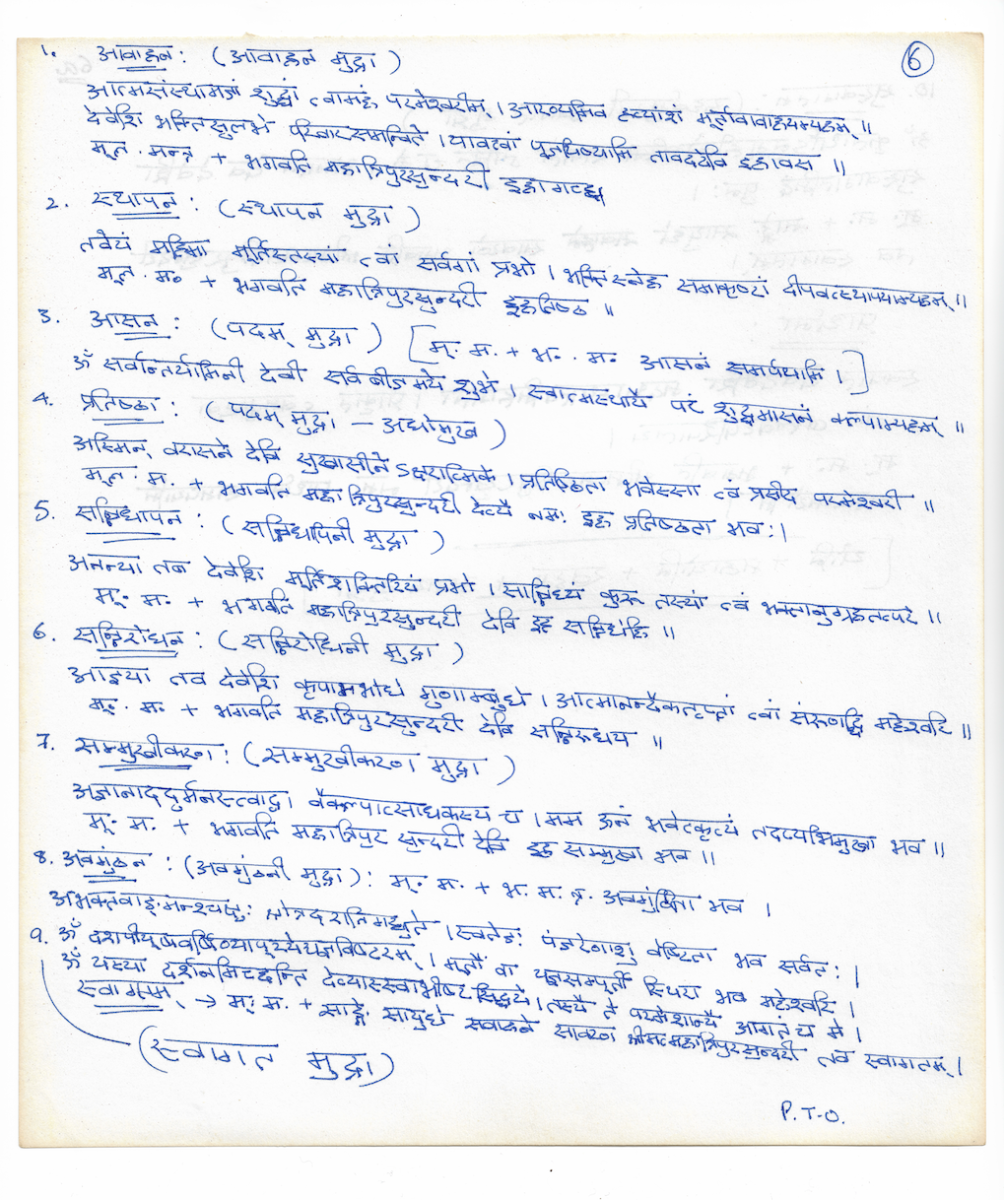 ⑥
1. आवाहन : (आवाहन मुद्रा)
आत्मसंस्थामजां शुद्धां त्वामहं परमेश्वरीम् । आरण्यमिव हव्याशं मूर्तावावाहयम्यहम् ॥
देवेशि भक्तिसुलभे परिवारसमन्विते । यावत्वां पूजयिष्यामि तावद्देवि इहावस ॥
मूल . मन्त्र + भगवति महात्रिपुरसुन्दरी इहागच्छ
2. स्थापन : (स्थापन मुद्रा)
तवेयं महिमा मूर्तिस्तस्यां त्वां सर्वगां प्रभो । भक्तिस्नेह समाकृष्टां दीपवत्स्थापयाम्यहम् ॥
मूल . म० + भगवति महात्रिपुरसुन्दरी इहतिष्ठ ॥
3. आसन : (पदम् मुद्रा) [मू. म. + भ. . म. आसनं समर्पयामि ।]
ॐ सर्वान्तर्यामिनी देवी सर्वबीजमये शुभे । स्वात्मस्थायै परं शुद्धमासनं कल्पाम्यहम् ॥
4. प्रतिष्ठा : (पदम् मुद्रा - अधोमुख)
अस्मिन् वरासने देवि सुखासीने ऽक्षरात्मिके । प्रतिष्ठिता भवेस्सा त्वं प्रसीद परमेश्वरी ॥
मूल . म. + भगवति महात्रिपुरसुन्दरी देव्यै नमः इह प्रतिष्ठता भवः ।
5. सन्निधापन : (सन्निधापिनी मुद्रा)
अनन्या तव देवेशि मूर्तिशक्तिरियं प्रभो । सान्निध्यं कुरु तस्यां त्वं भक्तानुग्रहतत्परे ॥
मू. म. + भगवति महात्रिपुरसुन्दरी देवि इह सन्निधेहि ॥
6. सन्निरोधन : (सन्निरोधिनी मुद्रा)
आज्ञया तव देवेशि कृपाम्भोधे गुणाम्बुधे । आत्मानन्दैकतृप्तां त्वां संरुणद्धि महेश्वरि ॥
मू. म. + भगवति महात्रिपुरसुन्दरी देवि सन्निरुधय ॥
7. सम्मुखीकरण : (सम्मुखीकरण मुद्रा)
अज्ञानाद्दुर्मनस्त्वाद्वा वैकल्पात्साधकस्य च । मम ऊनं भवेत्कृत्यं तदप्यभिमुखा भव ॥
मू. म. + भगवति महात्रिपुर सुन्दरी देवि इह सम्मुखा भव ॥
8. अवगुंठन : (अवगुंठनी मुद्रा) : मू. म. + भ. म. त्र. अवगुंठिता भव ।
पंजरेणाशु वेष्टिता भव सर्वतः ।
9. ॐ मूर्तौ वा यज्ञसम्पूर्ती स्थिरा भव महेश्वरि ।
ॐ यस्या दर्शनमिच्छन्ति देव्यास्स्वाभीष्टसिद्धये । तस्यै ते परमेशान्यै आगतं च मे ।
स्वागतम् → मू. म. + साङ्गे सायुधे सवाहने सावरण श्रीमत्महात्रिपुरसुन्दरी तव स्वागतम् ।
(स्वागत मुद्रा)
P.T.O.